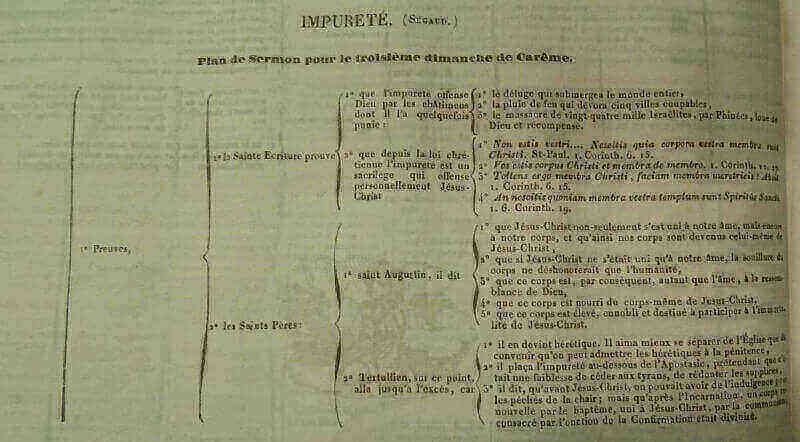 IMPURETÉ. (SÉGAUD.)
Plan de Sermon pour le troisième dimanche de Carême.
1° Preuves,
1° la Sainte Ecriture prouve
1° que l'impureté offense
Dieu par les châtimens
dont il l'a quelquefois
punie :
1° le déluge qui submergea le monde entier,
2° la pluie de feu qui dévora cinq villes coupables,
3° le massacre de vingt quatre mille Israélites, par Phinées, loué de
Dieu et récompensé.
2° que depuis la loi chré-
tienne l'impureté est un
sacrilege qui offense
personnellement Jésus-
Christ
1° Non estis vestri.... Nescitis quia corpora vestra membra sunt
Christi. St-Paul. 1. Corinth. 6. 15.
2° Vos estis corpus Christi et membra de membro. 1. Corinth.
3° Tollens ergo membra Christi, faciam membra meretricis? Absit
1. Corinth. 6. 15.
4° An nescitis quoniam membra vestra templum sunt Spiritûs Sancti
1. 6. Corinth. 19.
2° les Saints Pères :
1° saint Augustin, il dit
1° que Jésus-Christ non-seulement s'est uni à notre âme, mais encore
à notre corps, et qu'ainsi nos corps sont devenus celui-même de
Jésus-Christ,
2° que si Jésus-Christ ne s'était uni qu'à notre âme, la souillure du
corps ne déshonorerait que l'humanité,
3° que ce corps est, par conséquent, autant que l'âme, à la ressem-
blance de Dieu,
4° que ce corps est nourri du corps-même de Jésus-Christ,
5° que ce corps est élevé, ennobli et destiné à participer à l'immorta-
lité de Jésus-Christ.
2° Tertullien, sur ce point,
alla jusqu'à l'excès, car
1° il en devint hérétique. Il aima mieux se séparer de l'Église que de
convenir qu'on peut admettre les hérétiques à la pénitence,
2° il plaça l'impureté au-dessous de l'Apostasie, prétendant que c'é-
tait une faiblesse de céder aux tyrans, de redouter les supplices,
3° il dit, qu'avant Jésus-Christ, on pouvait avoir de l'indulgence pour
les péchés de la chair ; mais qu'après l'Incarnation, un corps
renouvelle par le baptême, uni à Jésus-Christ, par la communion,
consacré par l'onction de la Confirmation était divinité.